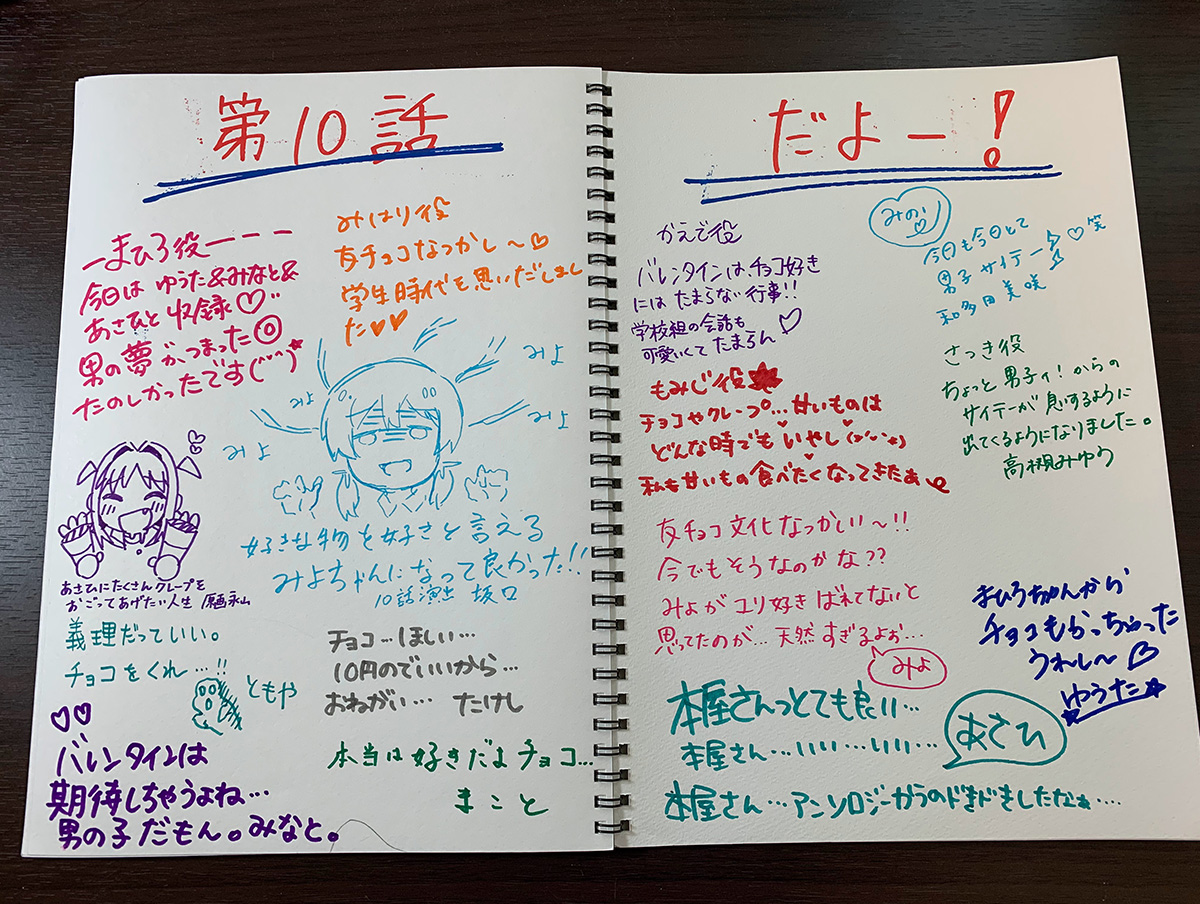 第10話
だよー!
ーまひろ役ーーー
今日は ゆうた&みなと&
あさひと 収録♡
男の夢がつまった◎
たのしかったです(^^)
みはり役
友チョコなつかし〜♡
学生時代を思いだしまし
た♡♡
みよ
みよ
みよ
みよ
好きな物を好きと言える
みよちゃんになって良かった!!
10話演出 坂口
あさひにたくさんクレープを
おごってあげたい人生 原画永山
義理だっていい。
チョコをくれ…!!
ともや
チョコ…ほしい…
10円のでいいから…
おねがい… たけし
♡♡
バレンタインは
期待しちゃうよね…
男の子だもん。みなと。
本当は好きだよチョコ…
まこと
かえで役
バレンタインは、チョコ好き
にはたまらない行事!!
学校組の会話も
可愛いくてたまらん♡
みのり
今日も今日とて
男子サイテー♡笑
和多田美咲
もみじ役
チョコやクレープ…甘いものは
どんな時でもいやし
私も甘いもの食べたくなってきたぁ
さつき役
ちょっと男子ィ!からの
サイテーが息するように
出てくるようになりました。
高槻みゆう
友チョコ文化なつかしい〜!!
今でもそうなのかな??
みよがユリ好きばれてないと
思ってたのが…天然すぎるよぉ…
みよ
まひろちゃんから
チョコもらっちゃった
うれし〜♡
ゆうた
本屋さんっとても良い…
本屋さん…いい…いい…
あさひ
本屋さん…アンソロジーかうのドキドキしたなぁ…